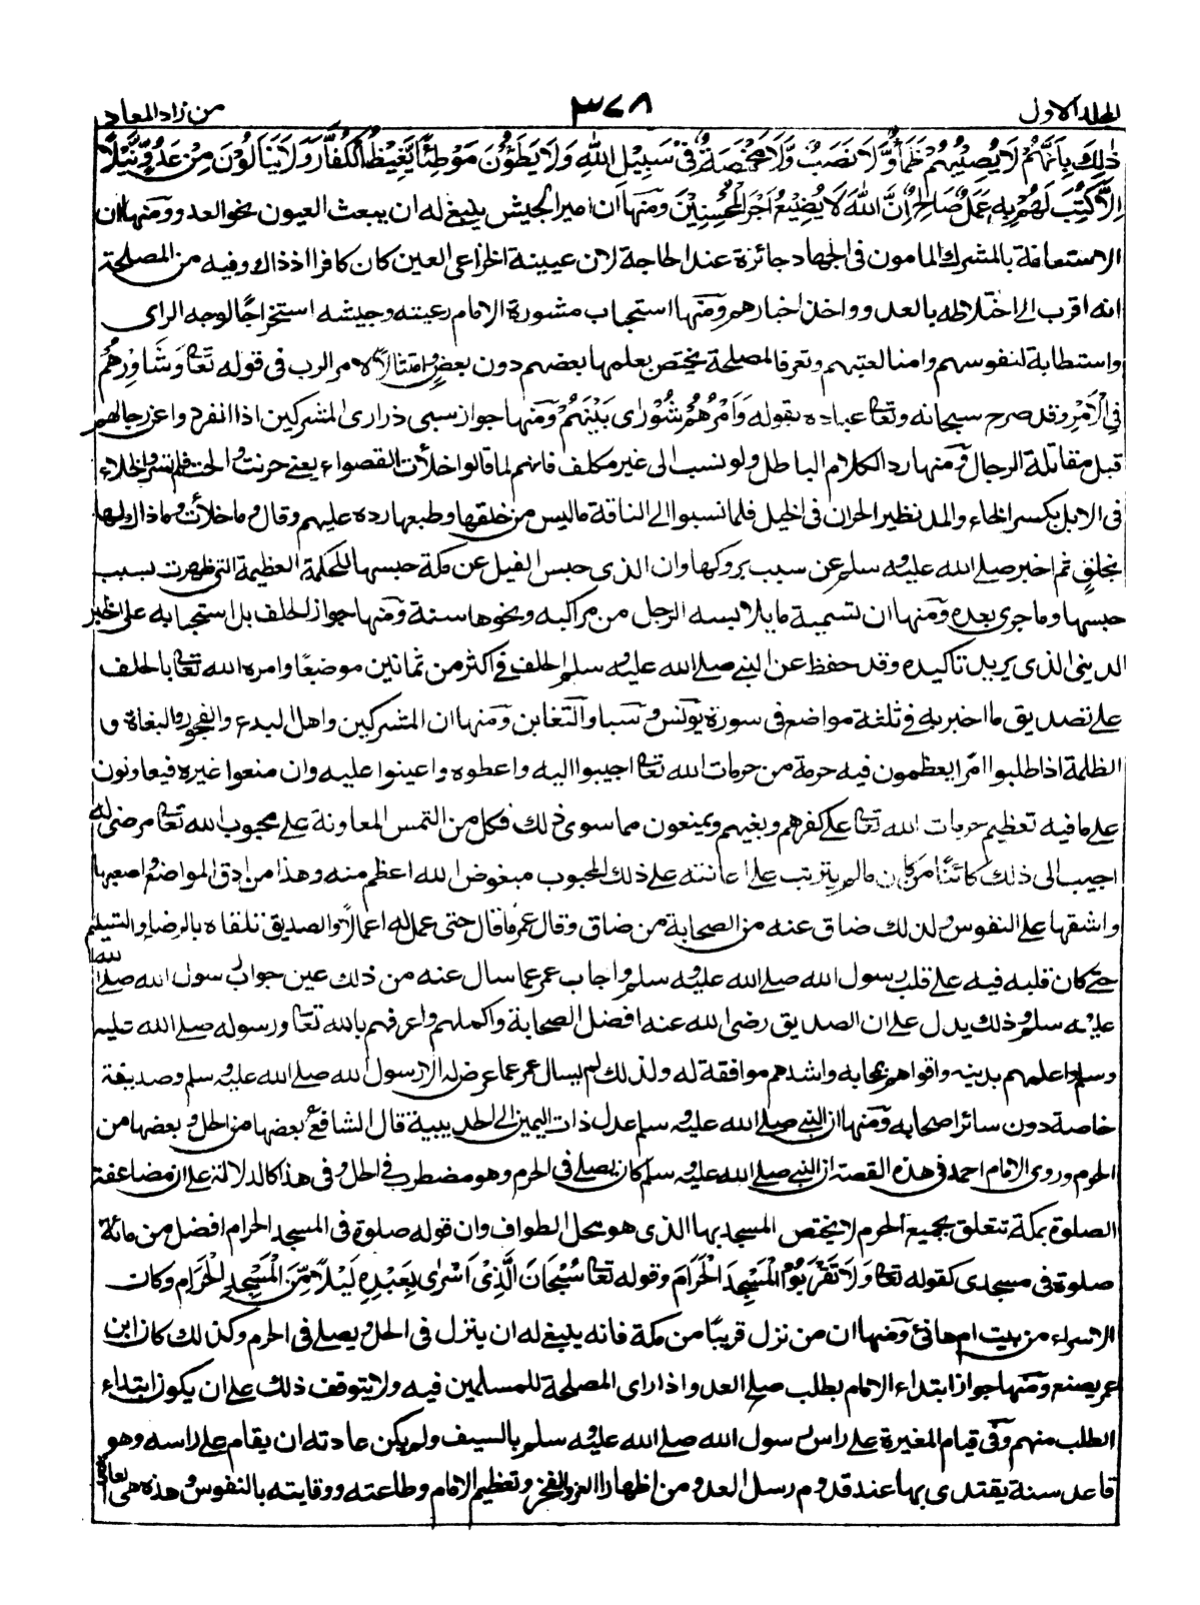 المجلد الاول ٣٧٨ من زاد المعاد
ذٰلِكَ بِاَنَّهُمْ لَا يُصِيْبُهُمْ ظَمَأٌ وَّلَا نَصَبٌ وَّلَا مَخْمَصَةٌ فِيْ سَبِيْلِ اللّٰهِ وَلَا يَطَؤُنَ مَوْطِئًا يَّغِيْظُ الْكُفَّارَ وَلَا يَنَالُوْنَ مِنْ عَدُوٍّ نَّيْلًا
اِلَّا كُتِبَ لَهُمْ بِهٖ عَمَلٌ صَالِحٌ اِنَّ اللّٰهَ لَا يُضِيْعُ اَجْرَ الْمُحْسِنِيْنَ ومنها ان امير الجيش ينبغي له ان يبعث العيون نحو العدو ومنها ان
الاستعانة بالمشرك المامون في الجهاد جائزة عند الحاجة لان عيينة الخزاعى العين كان كافرا اذ ذاك وفيه من المصلحة
انه اقرب الى اختلاطه بالعدو واخذ اخبارهم ومنها استحباب مشورة الامام رعيته وجيشه استخراجًا لوجه الراى
واستطابة لنفوسهم وامنا لعتبهم وتعرفا لمصلحة يختص بعلمها بعضهم دون بعض وامتثالا لامر الرب في قوله تعا وَشَاوِرْهُمْ
فِي الْاَمْرِ وقد صرح سبحانه وتعا عباده بقوله وَاَمْرُهُمْ شُوْرٰى بَيْنَهُمْ ومنها جواز سبى ذرارى المشركين اذا انفردوا عن رجالهم
قبل مقاتلة الرجال ومنها رد الكلام الباطل ولو نسب الى غير مكلف فانهم لما قالوا خلأت القصواء يعنى حرنت والحت فلم تسر والخلاء
في الابل بكسر الخاء والمد نظير الحران في الخيل فلما نسبوا الى الناقة ما ليس من خلقها وطبعها رده عليهم وقال وما خلأت وما ذاك لها
بخلق ثم اخبر صلى الله عليه وسلم عن سبب بروكها وان الذى حبس الفيل عن مكة حبسها للحكمة العظيمة التى ظهرت بسبب
حبسها وما جرى بعده ومنها ان تسمية ما يلابسه الرجل من مراكبه ونحوها سنة ومنها جواز الحلف بل استحبابه على الخبر
الدينى الذى يريد تاكيده وقد حفظ عن النبى صلى الله عليه وسلم الحلف في اكثر من ثمانين موضعًا وامره الله تعا بالحلف
على تصديق ما اخبر به في ثلثة مواضع في سورة يونس وسبا والتغابن ومنها ان المشركين واهل البدع والفجور والبغاة و
الظلمة اذا طلبوا امرًا يعظمون فيه حرمة من حرمات الله تعا اجيبوا اليه واعطوه واعينوا عليه وان منعوا غيره فيعاونون
على ما فيه تعظيم حرمات الله تعا على كفرهم وبغيهم ويمنعون مما سوى ذلك فكل من التمس المعاونة على محبوب الله تعا مرضى له
اجيب الى ذلك كائنًا من كان ما لم يترتب على اعانته على ذلك المحبوب مبغوض الله اعظم منه وهذا من ادق المواضع واصعبها
واشقها على النفوس ولذلك ضاق عنه من الصحابة من ضاق وقال عمر ما قال حتى عمل له اعمالا والصديق تلقاه بالرضا والتسليم
حتى كان قلبه فيه على قلب رسول الله صلى الله عليه وسلم واجاب عمر عما سال عنه من ذلك عين جواب رسول الله صلى الله
عليه وسلم وذلك يدل على ان الصديق رضى الله عنه افضل الصحابة واكملهم واعرفهم بالله تعا ورسوله صلى الله عليه
وسلم واعلمهم بدينه واقواهم بمحابه واشدهم موافقة له ولذلك لم يسال عمر عما عرض له الا رسول الله صلى الله عليه وسلم وصديقه
خاصة دون سائر اصحابه ومنها ان النبى صلى الله عليه وسلم عدل ذات اليمين الى الحديبية قال الشافعى بعضها من الحل وبعضها من
الحرم وروى الامام احمد في هذه القصة ان النبى صلى الله عليه وسلم كان يصلى في الحرم وهو مضطرب في الحل وفى هذا كالدلالة على ان مضاعفة
الصلوة بمكة تتعلق بجميع الحرم لا يختص المسجد بها الذى هو محل الطواف وان قوله صلوة في المسجد الحرام افضل من مائة
صلوة في مسجدى كقوله تعا وَلَا تَقْرَبُوا الْمَسْجِدَ الْحَرَامَ وقوله تعا سُبْحَانَ الَّذِيْ اَسْرٰى بِعَبْدِهٖ لَيْلًا مِّنَ الْمَسْجِدِ الْحَرَامِ وكان
الاسراء من بيت ام هانئ ومنها ان من نزل قريبًا من مكة فانه ينبغى له ان ينزل في الحل ويصلى في الحرم وكذلك كان ابن
عمر يصنع ومنها جواز ابتداء الامام بطلب صلح العدو اذا راى المصلحة للمسلمين فيه ولا يتوقف ذلك على ان يكون ابتداء
الطلب منهم وفى قيام المغيرة على راس رسول الله صلى الله عليه وسلم بالسيف ولم يكن عادته ان يقام على راسه وهو
قاعد سنة يقتدى بها عند قدوم رسل العدو من اظهار العز والفخر وتعظيم الامام وطاعته ووقايته بالنفوس وهذه هى